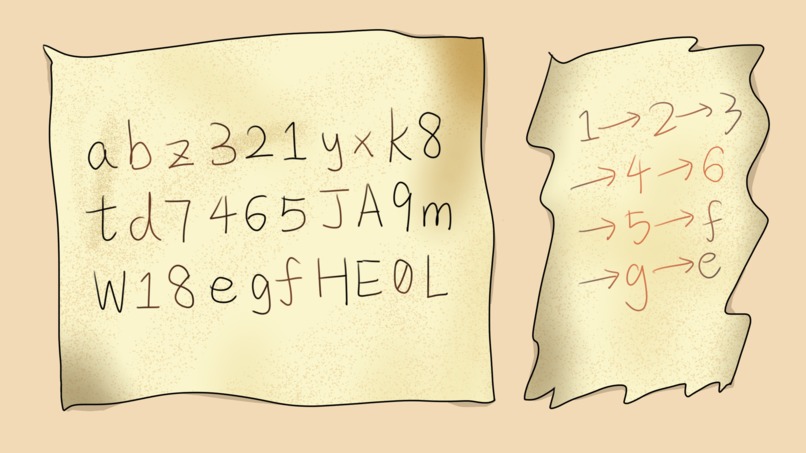 abz321yxk8
td7465JA9m
W18egfHE0L
1→2→3
→4→6
→5→f
→g→e